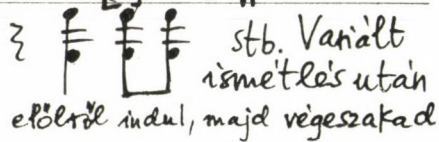 stb. Variált
ismétlés után
előlről indul, majd végeszakad